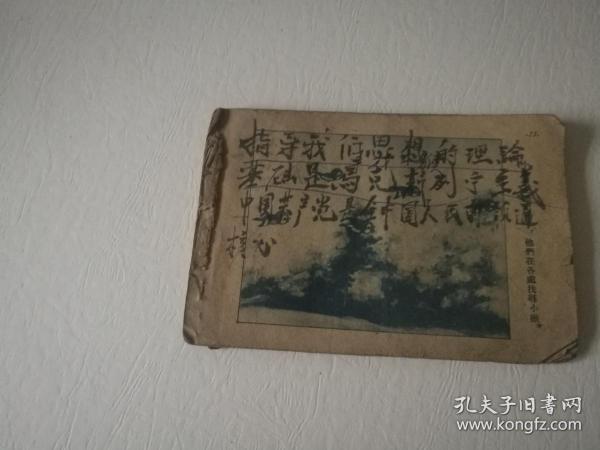 指导我们思想的理論
基础是馬克思列宁主义
中国共产党是全中国人民的領導
核心
-11-
他們在各處找尋小熊。
孔夫子旧書网
www.kongfz.com